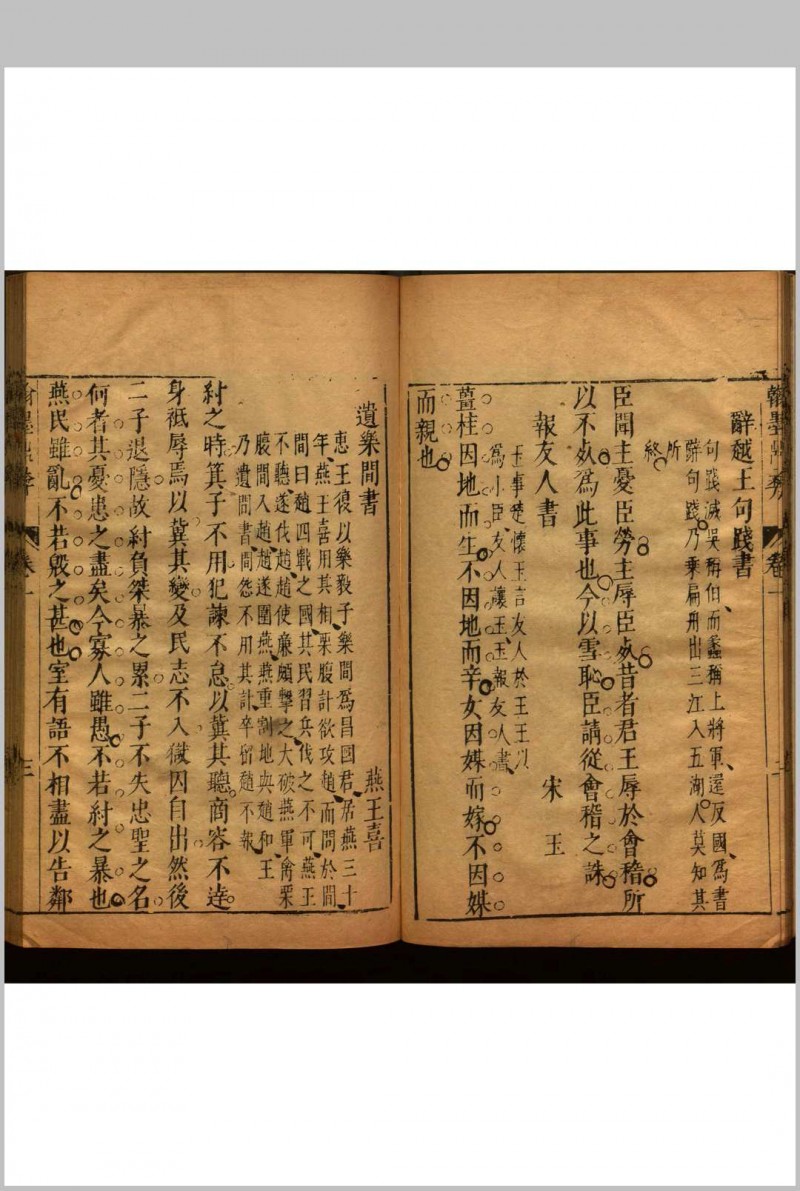 辭越王句踐書
句踐滅吳稱伯而蠡稱上將軍還反國爲書
辭句踐乃乘扁舟出三江入五湖人莫知其
所
終
臣聞主憂臣勞主辱臣死昔者君王辱於會稽所
以不死爲此事也今以雪恥臣請從會稽之誅
報友人書 宋玉
玉事楚懷王言友人於王王以
爲小臣友人讓玉玉報友人書
薑桂因地而生不因地而辛女因媒而嫁不因媒
而親也
遺樂間書 燕王喜
惠王復以樂毅子樂間爲昌國君居燕三十
年燕王喜用其相栗腹計欲攻趙而問於間
間曰趙四戰之國其民習兵伐之不可燕王
不聽遂伐趙趙使廉頗擊之大破燕軍禽栗
腹間入趙趙遂圍燕燕重割地與趙和王
乃遺間書間怨不用其計卒留趙不報
紂之時箕子不用犯諫不怠以冀其聽商容不達
身祇辱焉以冀其變及民志不入獄囚自出然後
二子退隱故紂負桀暴之累二子不失忠聖之名
何者其憂患之盡矣今寡人雖愚不若紂之暴也
燕民雖亂不若殷之甚也室有語不相盡以告鄰
卷一 三